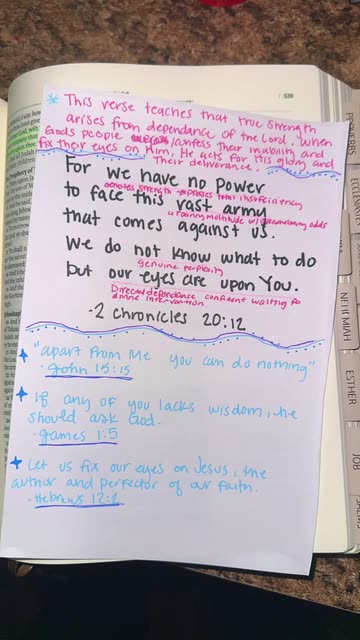 539
* This verse teaches that true strength
arises from dependance of the Lord. When
Gods people confess Their inability and
fix their eyes on Him, He acts for His glory and
Their deliverance.
For we have no power
denotes strength - total insufficiency
to face this vast army
a roaring multitude w/ overwhelming odds
that comes against us.
We do not know what to do
genuine perplexity
but our eyes are upon You.
Directed dependance confident waiting for
divine intervention
-2 chronicles 20:12
"apart from Me you can do nothing"
- John 15:15
If any of you lacks wisdom, he
should ask God.
- James 1:5
Let us fix our eyes on Jesus, the
author and perfector of our faith.
- Hebrews 12:2
NEHEMIAH
ESTHER
JOB
PSALMS